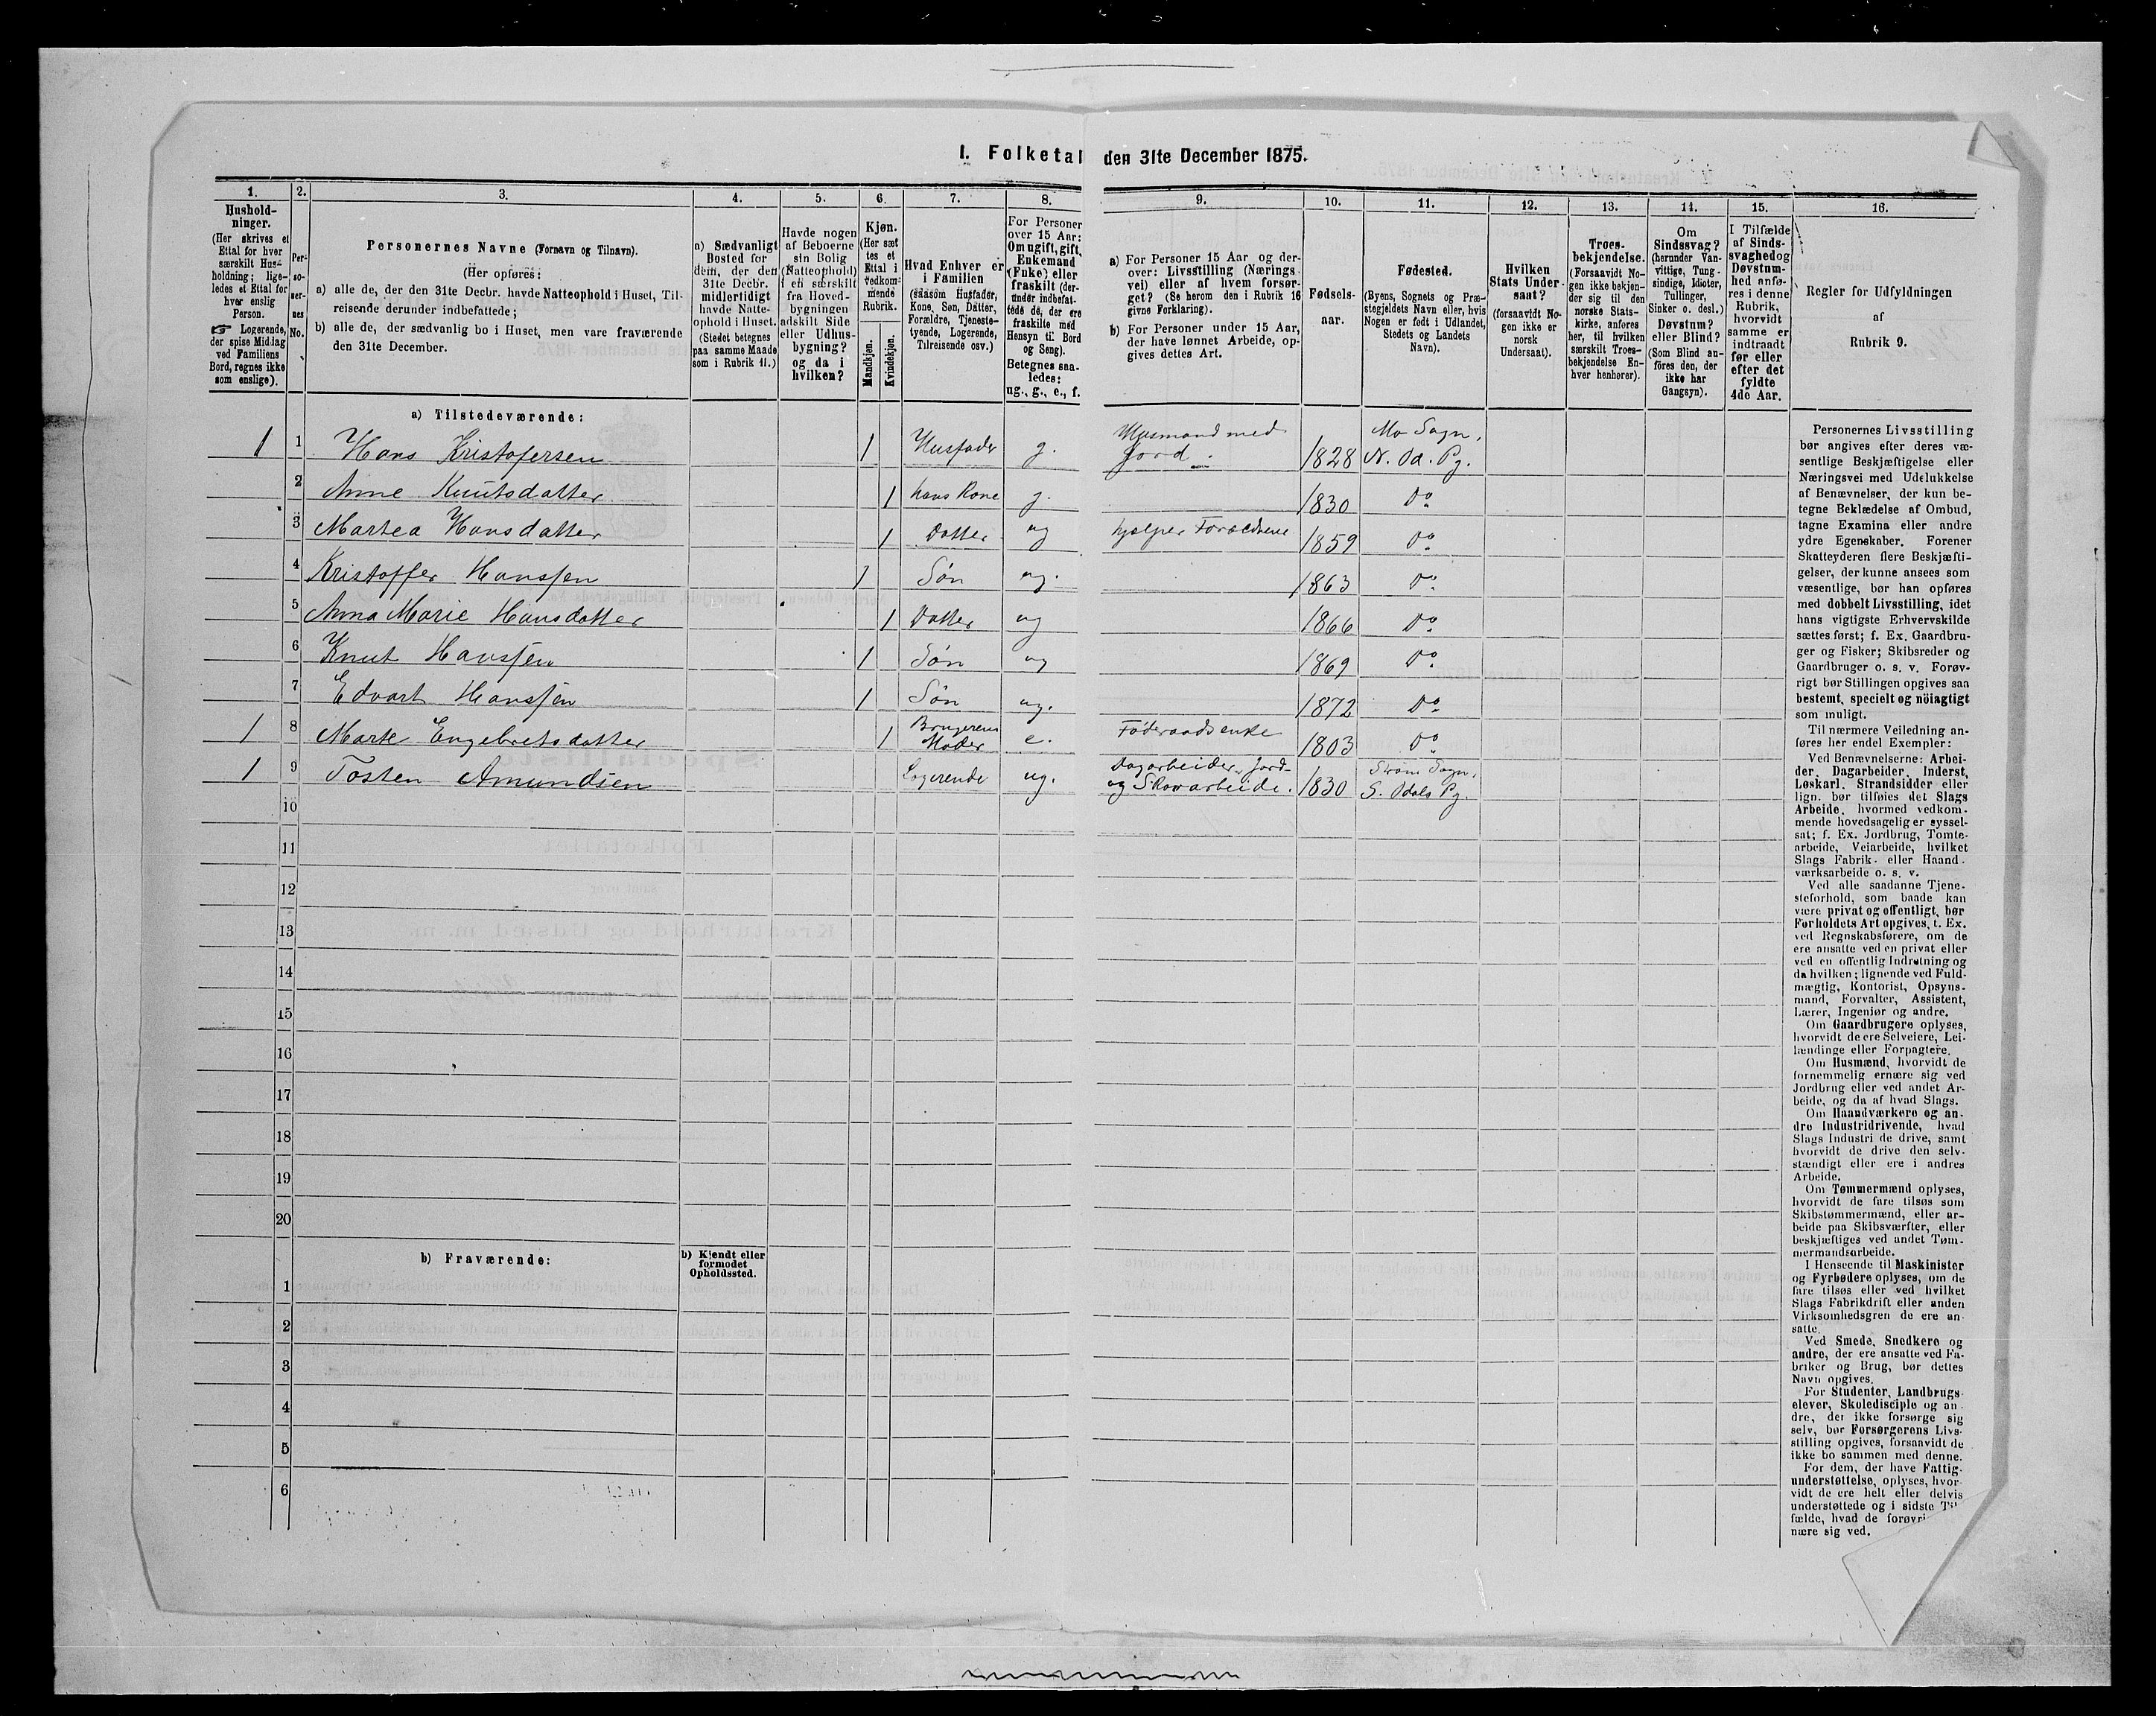 I. Folketal den 31te December 1875.
1.
Hushold-
ninger.
(Her skrives et
Ettal for hver
særskilt Hus-
holdning; lige-
ledes et Ettal for
hver enslig
Person.
☞ Logerende,
der spise Middag
ved Familiens
Bord, regnes ikke
som enslige).
2.
Per-
so-
ner-
nes
No.
3.
Personernes Navne (Fornavn og Tilnavn).
(Her opføres:
a) alle de, der den 31te Decbr. havde Natteophold i Huset, Til-
reisende derunder indbefattede;
b) alle de, der sædvanlig bo i Huset, men vare fraværende
den 31te December.
4.
a) Sædvanligt
Bosted for
dem, der den
31te Decbr.
midlertidigt
havde Natte-
ophold i Huset.
(Stedet betegnes
paa samme Maade
som i Rubrik 11.)
5.
Havde nogen
af Beboerne
sin Bolig
(Natteophold)
i en særskilt
fra Hoved-
bygningen
adskilt Side
eller Udhus-
bygning?
og da i
hvilken?
6.
Kjøn.
(Her sæt
tes et
Ettal i
vedkom-
mende
Rubrik.
Mandkjøn.
Kvindekjøn.
7.
Hvad Enhver er
i Familien
(saasom Husfader,
Kone, Søn, Datter,
Forældre, Tjeneste-
tyende, Logerende,
Tilreisende osv.)
8.
For Personer
over 15 Aar:
Om ugift, gift,
Enkemand
(Enke) eller
fraskilt (der-
under indbefat-
tede de, der ere
fraskilte med
Hensyn til Bord
og Seng).
Betegnes saa-
ledes:
ug., g., e., f.
9.
a) For Personer 15 Aar og der-
over: Livsstilling (Nærings
vei) eller af hvem forsør-
get? (Se herom den i Rubrik 16
givne Forklaring).
b) For Personer under 15 Aar,
der have lønnet Arbeide, op-
gives dettes Art.
10.
Fødsels-
aar.
11.
Fødested.
(Byens, Sognets og Præ-
stegjeldets Navn eller, hvis
Nogen er født i Udlandet,
Stedets og Landets
Navn).
12.
Hvilken
Stats Under
saat?
(forsaavidt No-
gen ikke er
norsk
Undersaat).
13.
Troes-
bekjendelse.
(Forsaavidt No-
gen ikke bekjen-
der sig til den
norske Stats-
kirke, anføres
her, til hvilken
særskilt Troes-
bekjendelse En-
hver henhører).
14.
Om
Sindssvag?
(herunder Van-
vittige, Tung-
sindige, Idioter,
Tullinger,
Sinker o. desl.)
Døvstum?
eller Blind?
(Som Blind an-
føres den, der
ikke har
Gangsyn).
15.
I Tilfælde
af Sinds-
svaghed og
Døvstum-
hed anfø-
res i denne
Rubrik,
hvorvidt
samme er
indtraadt
før eller
efter det
fyldte
4de Aar.
16.
Regler for Udfyldningen
af
Rubrik 9.
a) Tilstedeværende:
1 1 Hans Kristofersen 1 Husfader g. Husmand med Jord. 1828 Mo Sogn, N. Od. Pg.
2 Anne Knutsdatter 1 hans Kone g. 1830 Do
3 Martea Hansdatter 1 Datter ug hjælper Forældrene 1859 Do
4 Kristoffer Hanssen 1 Søn ug. 1863 Do
5 Anna Marie Hansdatter 1 Datter ug 1866 Do
6 Knut Hanssen 1 Søn ug 1869 Do
7 Edvart Hanssen 1 Søn ug. 1872 Do
1 8 Marte Engebretsdatter 1 Brugerens Moder e. Føderaadsenke 1803 Do
1 9 Tosten Amundsen Logerende ug. Dagarbeider, Jord- og Skovarbeide. 1830 Strøm Sogn, S. Odals Pg.
10
11
12
13
14
15
16
17
18
19
20
b) Fraværende:
b) Kjendt eller
formodet
Opholdssted.
1
2
3
4
5
6
Personernes Livsstilling
bør angives efter deres væ-
sentlige Beskjæftigelse eller
Næringsvei med Udelukkelse
af Benævnelser, der kun be-
tegne Beklædelse af Ombud,
tagne Examina eller andre
ydre Egenskaber. Forener
Skatteyderen flere Beskjæfti-
gelser, der kunne ansees som
væsentlige, bør han opføres
med dobbelt Livsstilling, idet
hans vigtigste Erhvervskilde
sættes først; f. Ex. Gaardbru-
ger og Fisker; Skibsreder og
Gaardbruger o. s. v. Forøv-
rigt bør Stillingen opgives saa
bestemt, specielt og nöiagtigt
som muligt.
Til nærmere Veiledning an-
føres her endel Exempler:
Ved Benævnelserne: Arbei-
der, Dagarbeider, Inderst,
Løskarl, Strandsidder eller
lign. bør tilføies det Slags
Arbeide, hvormed vedkom-
mende hovedsagelig er syssel-
sat; f. Ex. Jordbrug, Tomte-
arbeide, Veiarbeide, hvilket
Slags Fabrik- eller Haand-
værksarbeide o. s. v.
Ved alle saadanne Tjene-
steforhold, som baade kan
være privat og offentligt, bør
Forholdets Art opgives, t. Ex.
ved Regnskabsførere, om de
ere ansatte ved en privat eller
ved en offentlig Indretning og
da hvilken; lignende ved Fuld-
mægtig, Kontorist, Opsyns-
mand, Forvalter, Assistent,
Lærer, Ingeniør og andre.
Om Gaardbrugere oplyses,
hvorvidt de ere Selveiere, Lei-
lændinge eller Forpagtere.
Om Husmænd, hvorvidt de
fornemmelig ernære sig ved
Jordbrug eller ved andet Ar-
beide, og da af hvad Slags.
Om Haandværkere og an-
dre Industridrivende, hvad
Slags Industri de drive, samt
hvorvidt de drive den selv-
stændigt eller ere i andres
Arbeide.
Om Tømmermænd oplyses,
hvorvidt de fare tilsøs som
Skibstømmermænd, eller ar-
beide paa Skibsværfter, eller
beskjæftiges ved andet Tøm-
mermandsarbeide.
I Henseende til Maskinister
og Fyrbødere oplyses, om de
fare tilsøs eller ved hvilket
Slags Fabrikdrift eller anden
Virksomhedsgren de ere an-
satte.
Ved Smede, Snedkere og
andre, der ere ansatte ved Fa-
briker og Brug, bør dettes
Navn opgives.
For Studenter, Landbrugs-
elever, Skoledisciple og an-
dre, der ikke forsørge sig
selv, bør Forsørgerens Livs-
stilling opgives, forsaavidt de
ikke bo sammen med denne.
For dem, der have Fattig-
understøttelse, oplyses, hvor-
vidt de ere helt eller delvis
understøttede og i sidste
fælde, hvad de
nære sig ved.